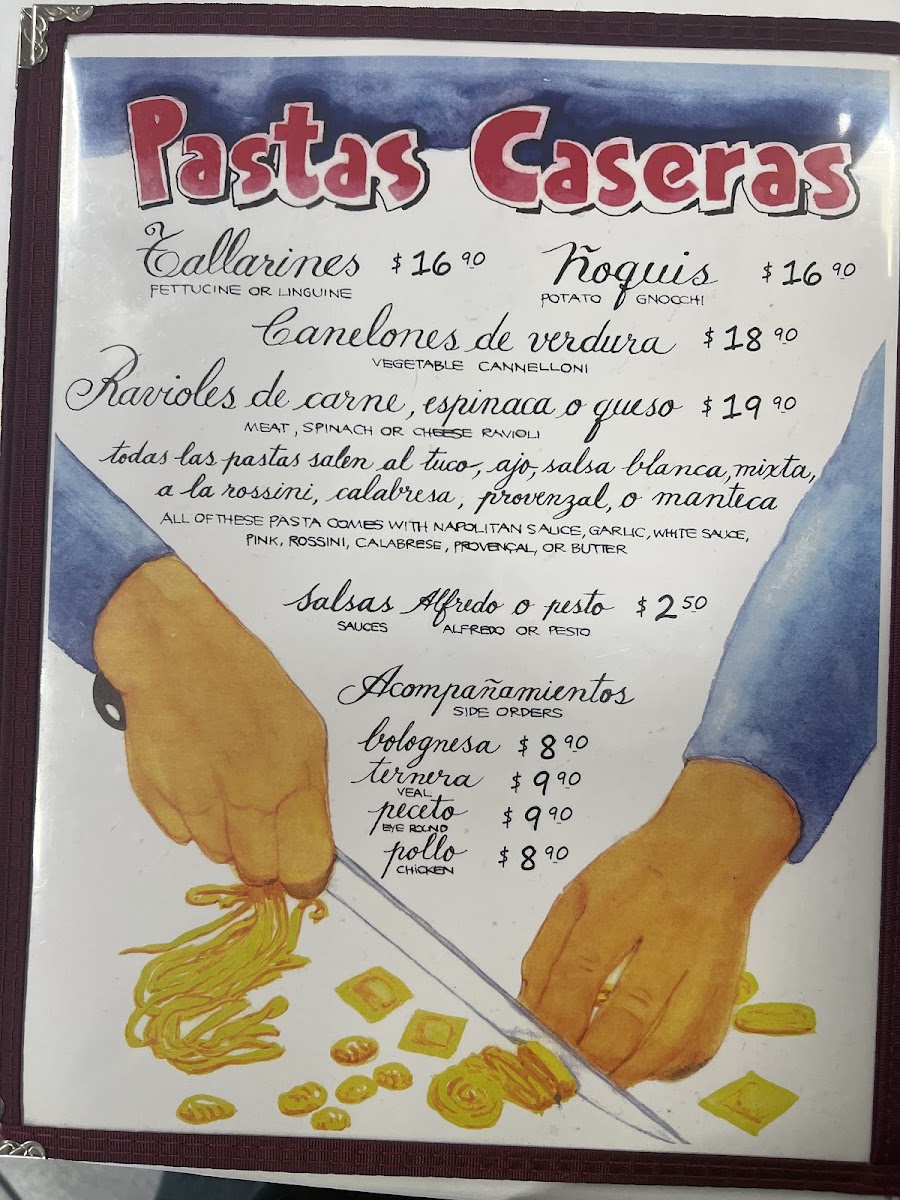 Pastas Caseras
Tallarines $16 90
FETTUCINE OR LINGUINE
Ñoquis $16 90
POTATO GNOCCHI
Canelones de verdura $18 90
VEGETABLE CANNELLONI
Ravioles de carne, espinaca o queso $19 90
MEAT, SPINACH OR CHEESE RAVIOLI
todas las pastas salen al tuco, ajo, salsa blanca, mixta,
a la rossini, calabresa, provenzal, o manteca
ALL OF THESE PASTA COMES WITH NAPOLITAN SAUCE, GARLIC, WHITE SAUCE,
PINK, ROSSINI, CALABRESE, PROVENÇAL, OR BUTTER
salsas Alfredo o pesto $2 50
SAUCES ALFREDO OR PESTO
Acompañamientos
SIDE ORDERS
bolognesa $8 90
ternera $9 90
VEAL
peceto $9 90
EYE ROUND
pollo $8 90
CHICKEN